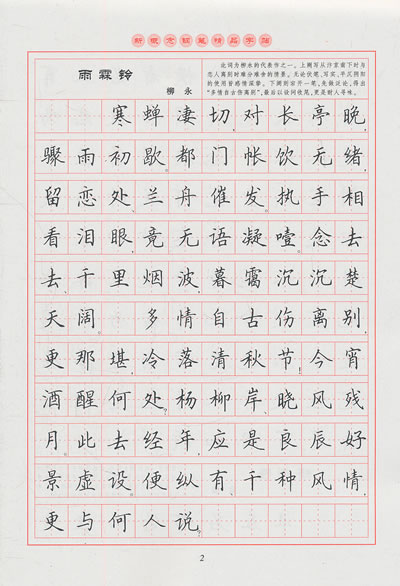 雨霖铃
此词为柳永的代表作之一。上阕写从汴京南下时与
恋人离别时难分难舍的情景。无论伏笔、写实、
的使用皆 下阕则宕开一笔,先做泛论,得出
“多情自古伤离别”,最后以设问收尾,更是耐人寻味。
柳永
寒蝉凄切,对长亭晚,
骤雨初歇。都门帐饮无绪,
留恋处,兰舟催发。执手相
看泪眼,竟无语凝噎。念去
去,千里烟波,暮霭沉沉楚
天阔。多情自古伤离别,
更那堪,冷落清秋节!今宵
酒醒何处?杨柳岸,晓风残
月。此去经年,应是良辰好
景虚设。便纵有千种风情,
更与何人说。
2